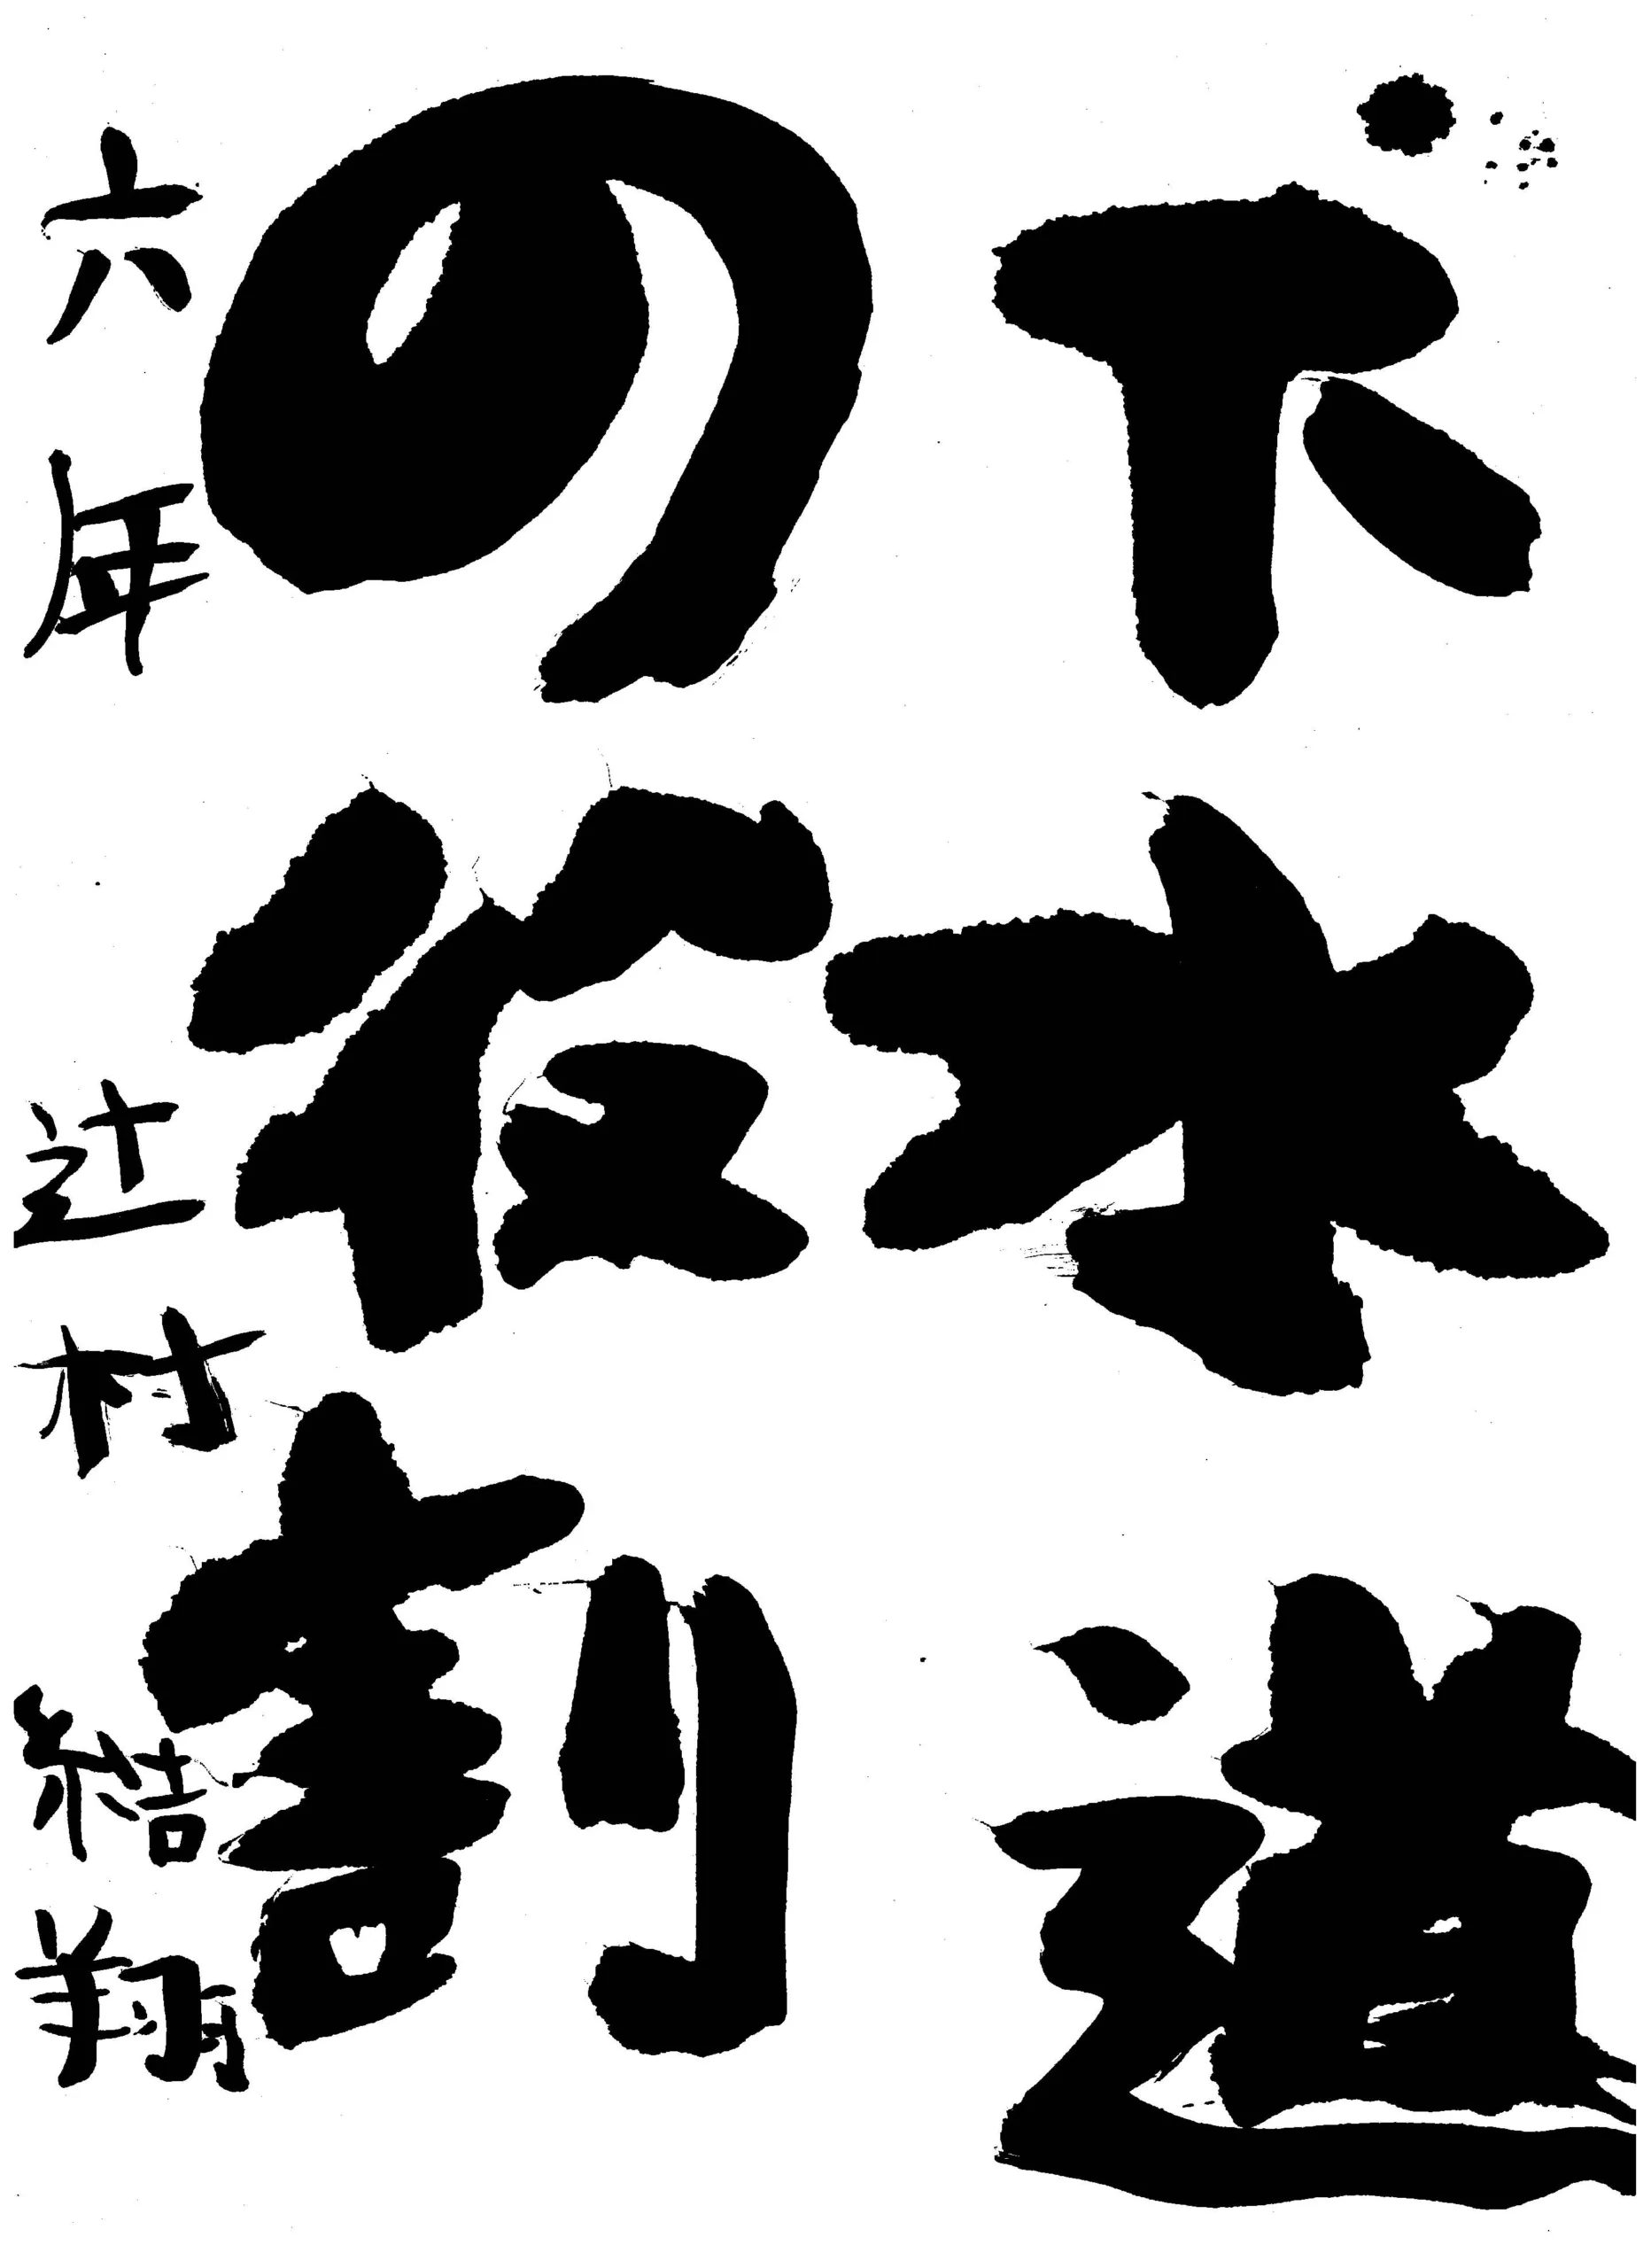 下水道
の役割
六年 辻村結翔